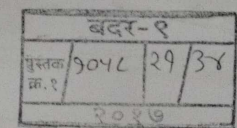 बदर-९
पुस्तक क्र.१ १०५८ २१ ३४
२०१७